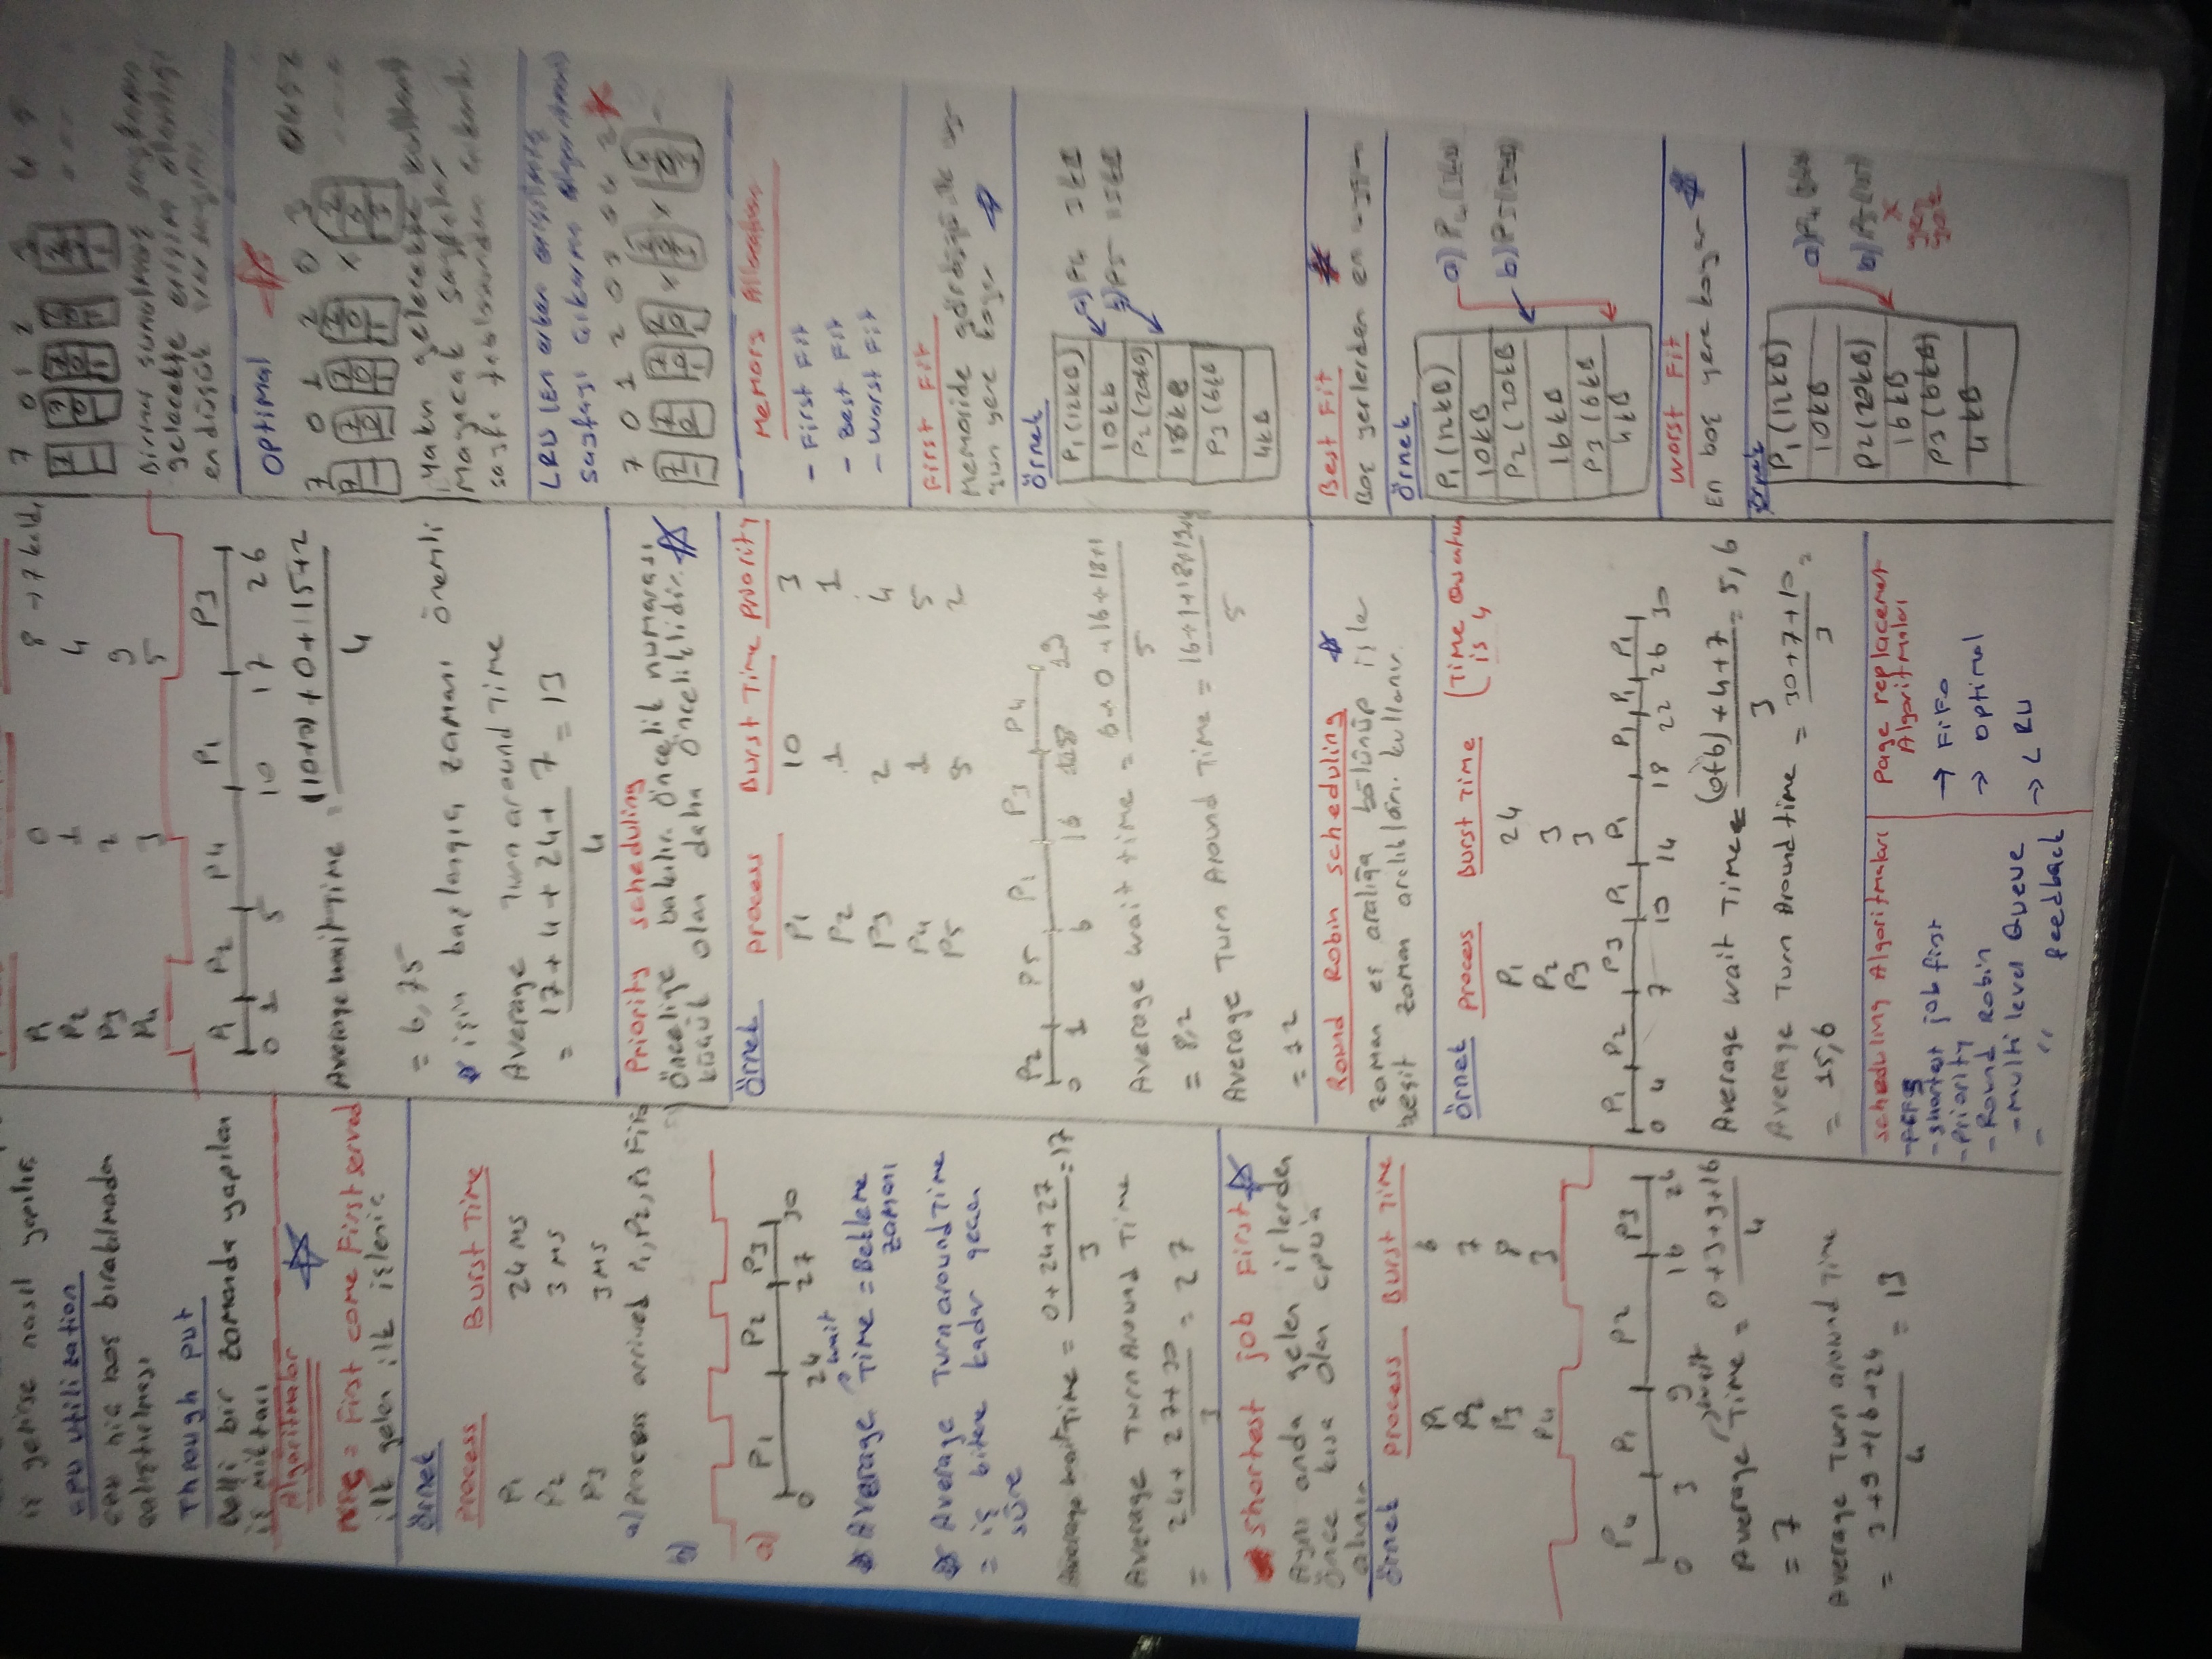 iş gelirse nasıl yapılır
CPU utilization
CPU hiç boş bırakılmadan
çalıştırılması
Through put
Belli bir zamanda yapılan
iş miktarı
Algoritmalar
= First come First served
ilk gelen ilk işlenir
örnek
Process Burst Time
P1 24 MS
P2 3 MS
P3 3 MS
a) Process arrived P1, P2, P3 FiFo
b)
a) P1 P2 P3
0 24 27 30
wait
Average Time = Bekleme
zamanı
Average Turn around Time
= iş bitene kadar geçen
süre
Average wait Time = 0+24+27 = 17
3
Average Turn Around Time
= 24+ 27+30 = 27
3
Shortest job First
Aynı anda gelen işlerden
önce kısa olan cpu'a
alınır
örnek Process Burst Time
P1 6
P2 7
P3 8
P4 3
P4 P1 P2 P3
0 3 9 16 24
wait
Average Time = 0+3+9+16
4
= 7
Average Turn around Time
= 3+9+16+24 = 13
4
P1 0 8 → 7 kaldı
P2 1 4
P3 2 9
P4 3 5
P1 P2 P4 P1 P3
0 1 5 10 17 26
Average wait Time = +0+15+2
4
= 6,75
işin başlangıç zamanı önemli
Average Turn around Time
= 17+4+24+7 = 13
4
Priority scheduling
önceliğe bakılır. öncelik numarası
küçük olan daha önceliklidir.
örnek Process Burst Time Priority
P1 10 3
P2 1 1
P3 2 4
P4 1 5
P5 5 2
P2 P5 P1 P3 P4
0 1 6 16 18 19
Average wait time = 6+0+16+18+1
5
= 8,2
Average Turn Around Time = 16+1+18+19+6
5
= 12
Round Robin scheduling
zaman eş aralığa bölünüp işle
eşit zaman aralıkları kullanır.
örnek Process Burst Time (Time Quantum
is 4
P1 24
P2 3
P3 3
P1 P2 P3 P1 P1 P1 P1 P1
0 4 7 10 14 18 22 26 30
Average wait Time = (0+6)+4+7 = 5,6
3
Average Turn Around time = 30+7+10 =
3
= 15,6
scheduling Algoritmaları
- FCFS
- shortest job first
- Priority
- Round Robin
- Multi level Queue
- " feedback
Page replacement
Algoritmaları
→ FiFo
→ optimal
→ LRU
7 0 1 2 3 4 5
gelecekte erişim
en düşük
OPtimal
7 0 1 2 0 3 0452
Yakın gelecekte kullanıl
mayacak sayfalar
sayfa tablosundan çıkarılır
LRU (En erken erişilmiş
sayfayı çıkarma algoritması)
7 0 1 2 0 3 0 4 2
Memory Allocation
- First Fit
- Best Fit
- Worst Fit
First Fit
Memoride gördüğü ilk uy
gun yere koyar
örnek
P1 (12kB) a) P4 3kB
10kb b) P5 15kB
P2 (20kB)
16kB
P3 (6kB
4kB
Best Fit
Boş yerlerden en uygun
örnek
P1 (12kB) a) P4 (3kB)
10kB
P2 (20kB b) P5 (15kB)
16kB
P3 (6kB
4kB
Worst Fit
En boş yere koyar
örnek
P1 (12kB) a) P4
10kB
P2 (20kB) b) P5
16kB x
P3 (6kB) yer
4kB yok